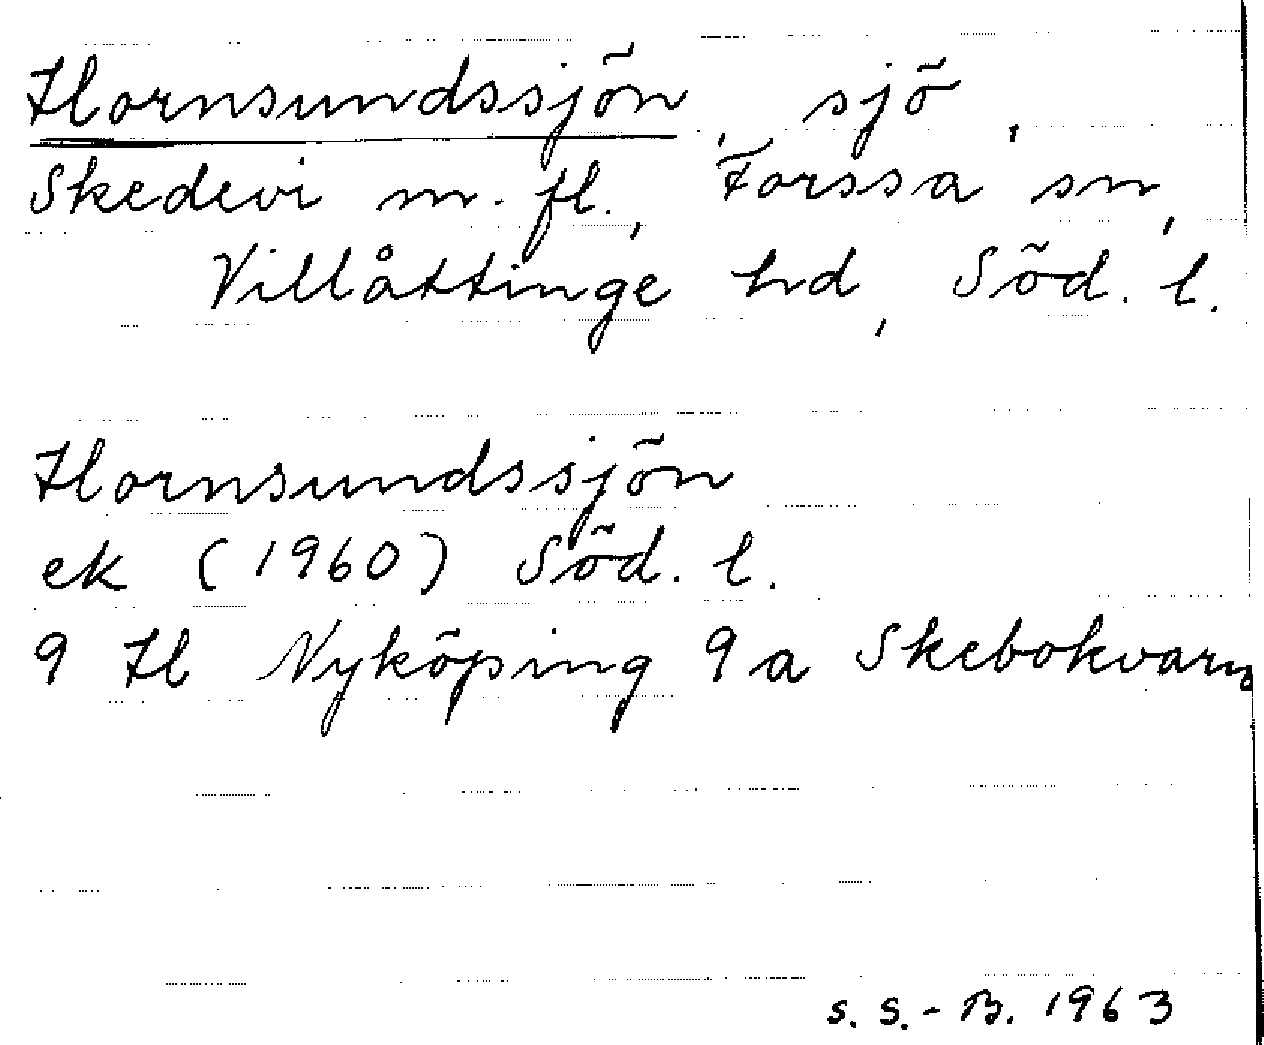 Hornsundssjön, sjö,
Skedevi m. fl., Forssa sn,
Villåttinge hd, Söd. l.
Hornsundssjön
ek (1960) Söd. l.
9 H Nyköping 9a Skebokvarn
S. S.-B. 1963